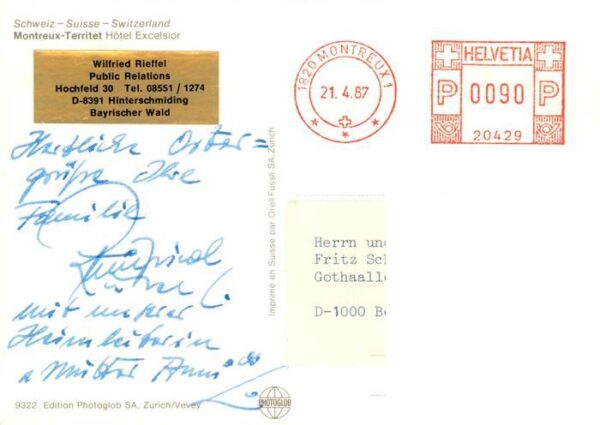 Schweiz – Suisse – Switzerland
Montreux-Territet Hôtel Excelsior
Wilfried Rieffel
Public Relations
Hochfeld 30 Tel. 08551 / 1274
D-8391 Hinterschmiding
Bayrischer Wald
1820 MONTREUX 1
21.4.87
HELVETIA
P 0090 P
20429
Herzliche Oster-
grüße Ihre
Familie
mit unserer
Heimleiterin
Imprimé en Suisse par Orell Füssli SA, Zürich
Herrn und
Fritz Sch
Gothaalle
D-1000 Be
9322 Edition Photoglob SA, Zurich/Vevey
PHOTOGLOB